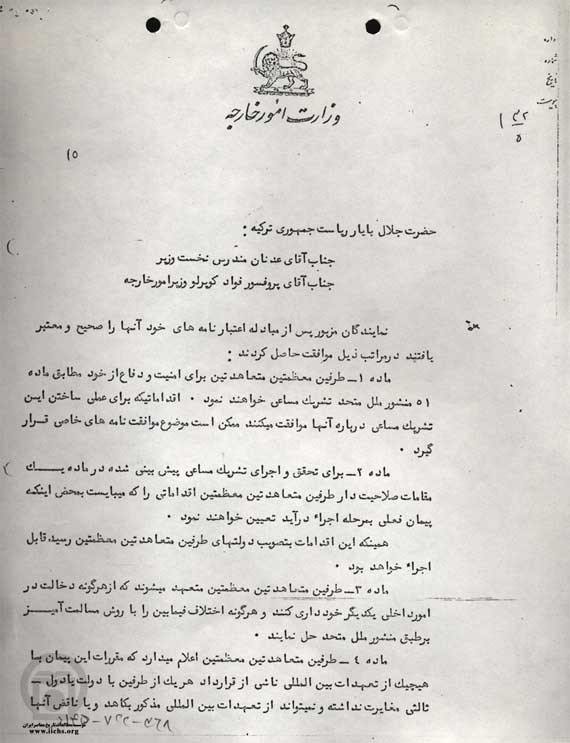 وزارت امورخارجه
اداره
شماره
تاریخ
پیوست
۱۵
حضرت جلال بایار ریاست جمهوری ترکیه :
جناب آقای عدنان مندرس نخست وزیر
جناب آقای پروفسور فواد کوپرلو وزیر امورخارجه
نمایندگان مزبور پس از مبادله اعتبار نامه های خود آنها را صحیح و معتبر
یافتند در مراتب ذیل موافقت حاصل کردند :
ماده ۱ــ طرفین معظمتین متعاهدتین برای امنیت و دفاع از خود مطابق ماده
۵۱ منشور ملل متحد تشریک مساعی خواهند نمود . اقداماتیکه برای عملی ساختن این
تشریک مساعی درباره آنها موافقت میکنند ممکن است موضوع موافقت نامه های خاصی قرار
گیرد .
ماده ۲ــ برای تحقق و اجرای تشریک مساعی پیش بینی شده در ماده یک
مقامات صلاحیت دار طرفین متعاهدتین معظمتین اقداماتی را که میبایست بمحض اینکه
پیمان فعلی بمرحله اجراء درآید تعیین خواهند نمود .
همینکه این اقدامات بتصویب دولتهای طرفین متعاهدتین معظمتین رسید قابل
اجراء خواهد بود .
ماده ۳ــ طرفین متعاهدتین معظمتین متعهد میشوند که از هرگونه دخالت در
امور داخلی یکدیگر خود داری کنند و هرگونه اختلاف فیمابین را با روش مسالمت آمیز
برطبق منشور ملل متحد حل نمایند .
ماده ۴ــ طرفین متعاهدتین معظمتین اعلام میدارد که مقررات این پیمان با
هیچیک از تعهدات بین المللی ناشی از قرارداد هر یک از طرفین با دولت یا دول ــ
ثالثی مغایرت نداشته و نمیتواند از تعهدات بین المللی مذکور بکاهد و یا ناقض آنها
موسسه مطالعات تاریخ معاصر ایران
www.iichs.org